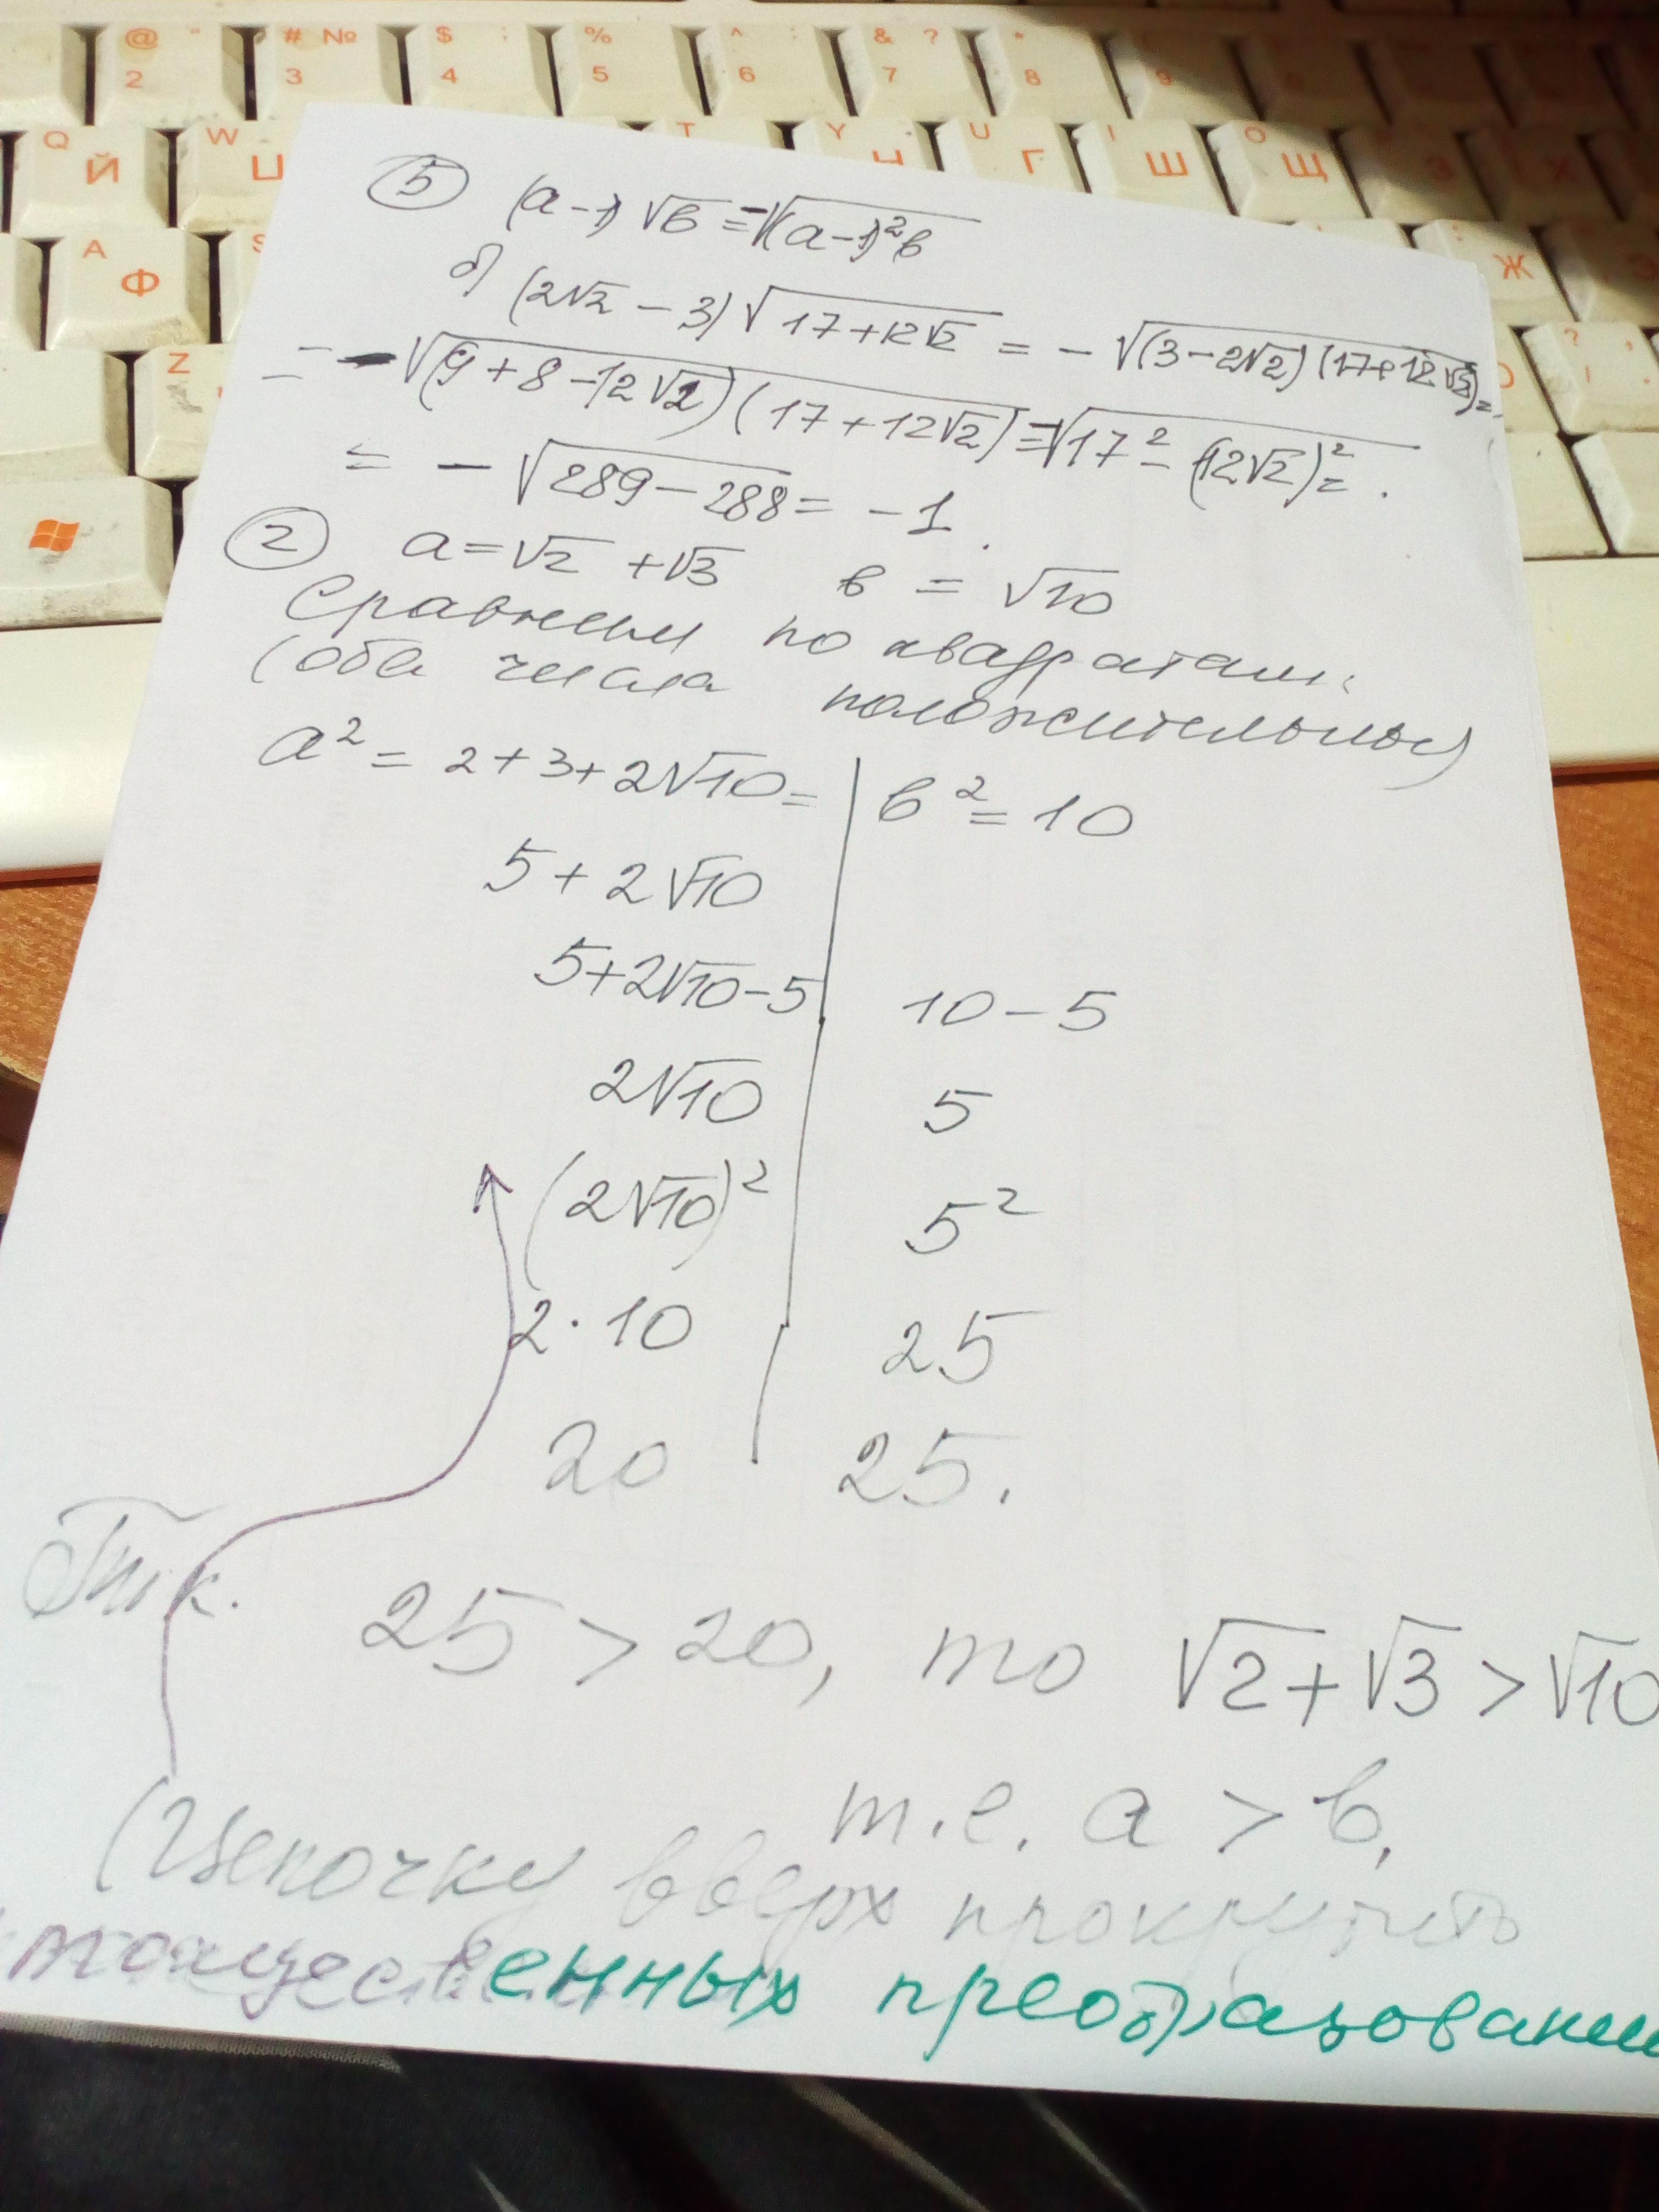 @ " # № $ ; % ^ : & ? *
2 3 4 5 6 7 8 9
Q Й W Ц T Y Н U Г I Ш O Щ
A Ф S Ж
Z
⑤ (a-1)√b = -√(a-1)²b
б) (2√2 - 3)√(17+12√2) = -√((3-2√2)(17+12√2)) =
= -√((9+8-12√2)(17+12√2)) = -√(17² - (12√2)²) =
= -√(289-288) = -1.
② a = √2 + √3 в = √10
Сравним по квадратам.
(оба числа положительны)
a² = 2+3+2√10 = | в² = 10
5+2√10
5+2√10-5 | 10-5
2√10 | 5
(2√10)² | 5²
2·10 | 25
20 | 25.
Т.к. 25 > 20, то √2+√3 > √10
т.е. a > b.
(Цепочку вверх прокрутить
тождественных преобразовани